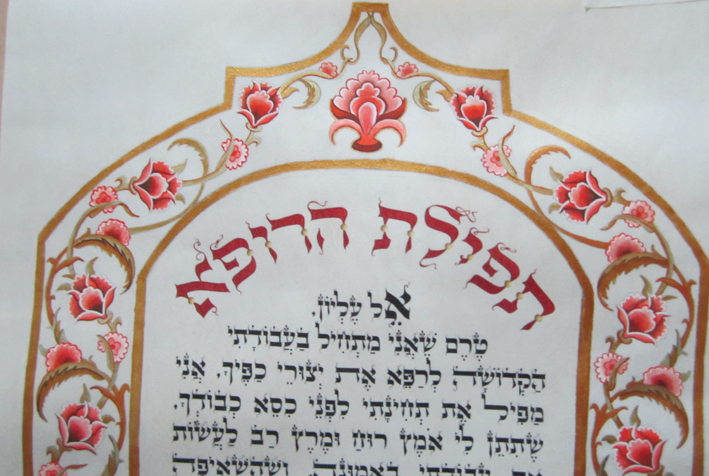 תפילת הרופא
אֵל עֶלְיוֹן,
טֶרֶם שֶׁאֲנִי מַתְחִיל בַּעֲבוֹדָתִי
הַקְּדוֹשָׁה לְרַפֵּא אֶת יְצוּרֵי כַפֶּיךָ, אֲנִי
מַפִּיל אֶת תְּחִינָתִי לִפְנֵי כִּסֵּא כְבוֹדֶךָ,
שֶׁתִּתֵּן לִי אֹמֶץ רוּחַ וּמֶרֶץ רַב לַעֲשׂוֹת
אֶת עֲבוֹדָתִי בֶּאֱמוּנָה, וְשֶׁהַשְּׁאִיפָה